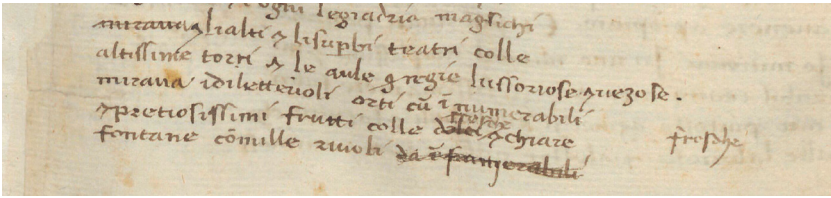 ogni legiadria magnichi
mirava & li alti & li supbi teatri colle
altissime torri & le aule & regie lussoriose & vezose.
mirava i diletteuoli orti cū īnumerabili
& pretiosissimi frutti colle dolci fresche & chiare fresche
fontane cō mille riuoli da īfrumerabili